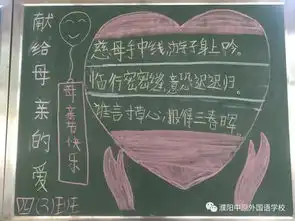 献给母亲的爱
母亲节快乐
慈母手中线,游子身上吟。
临行密密缝,意恐迟迟归。
谁言寸草心,报得三春晖。
四(3)班
濮阳中原外国语学校